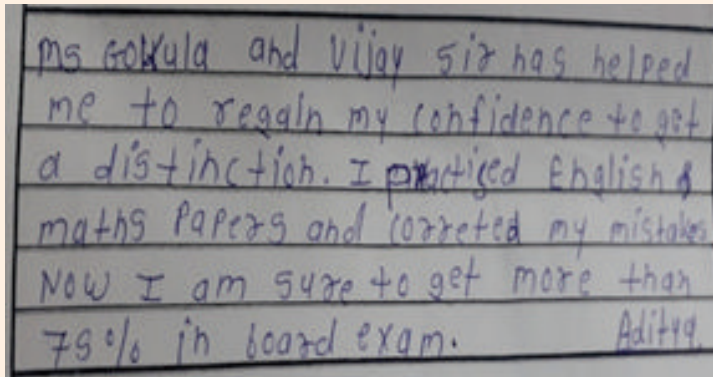 Ms Gokula and Vijay Sir has helped
me to regain my confidence to get
a distinction. I practised English &
maths Papers and correted my mistakes
NOW I am sure to get more than
75% in board exam. Aditya.